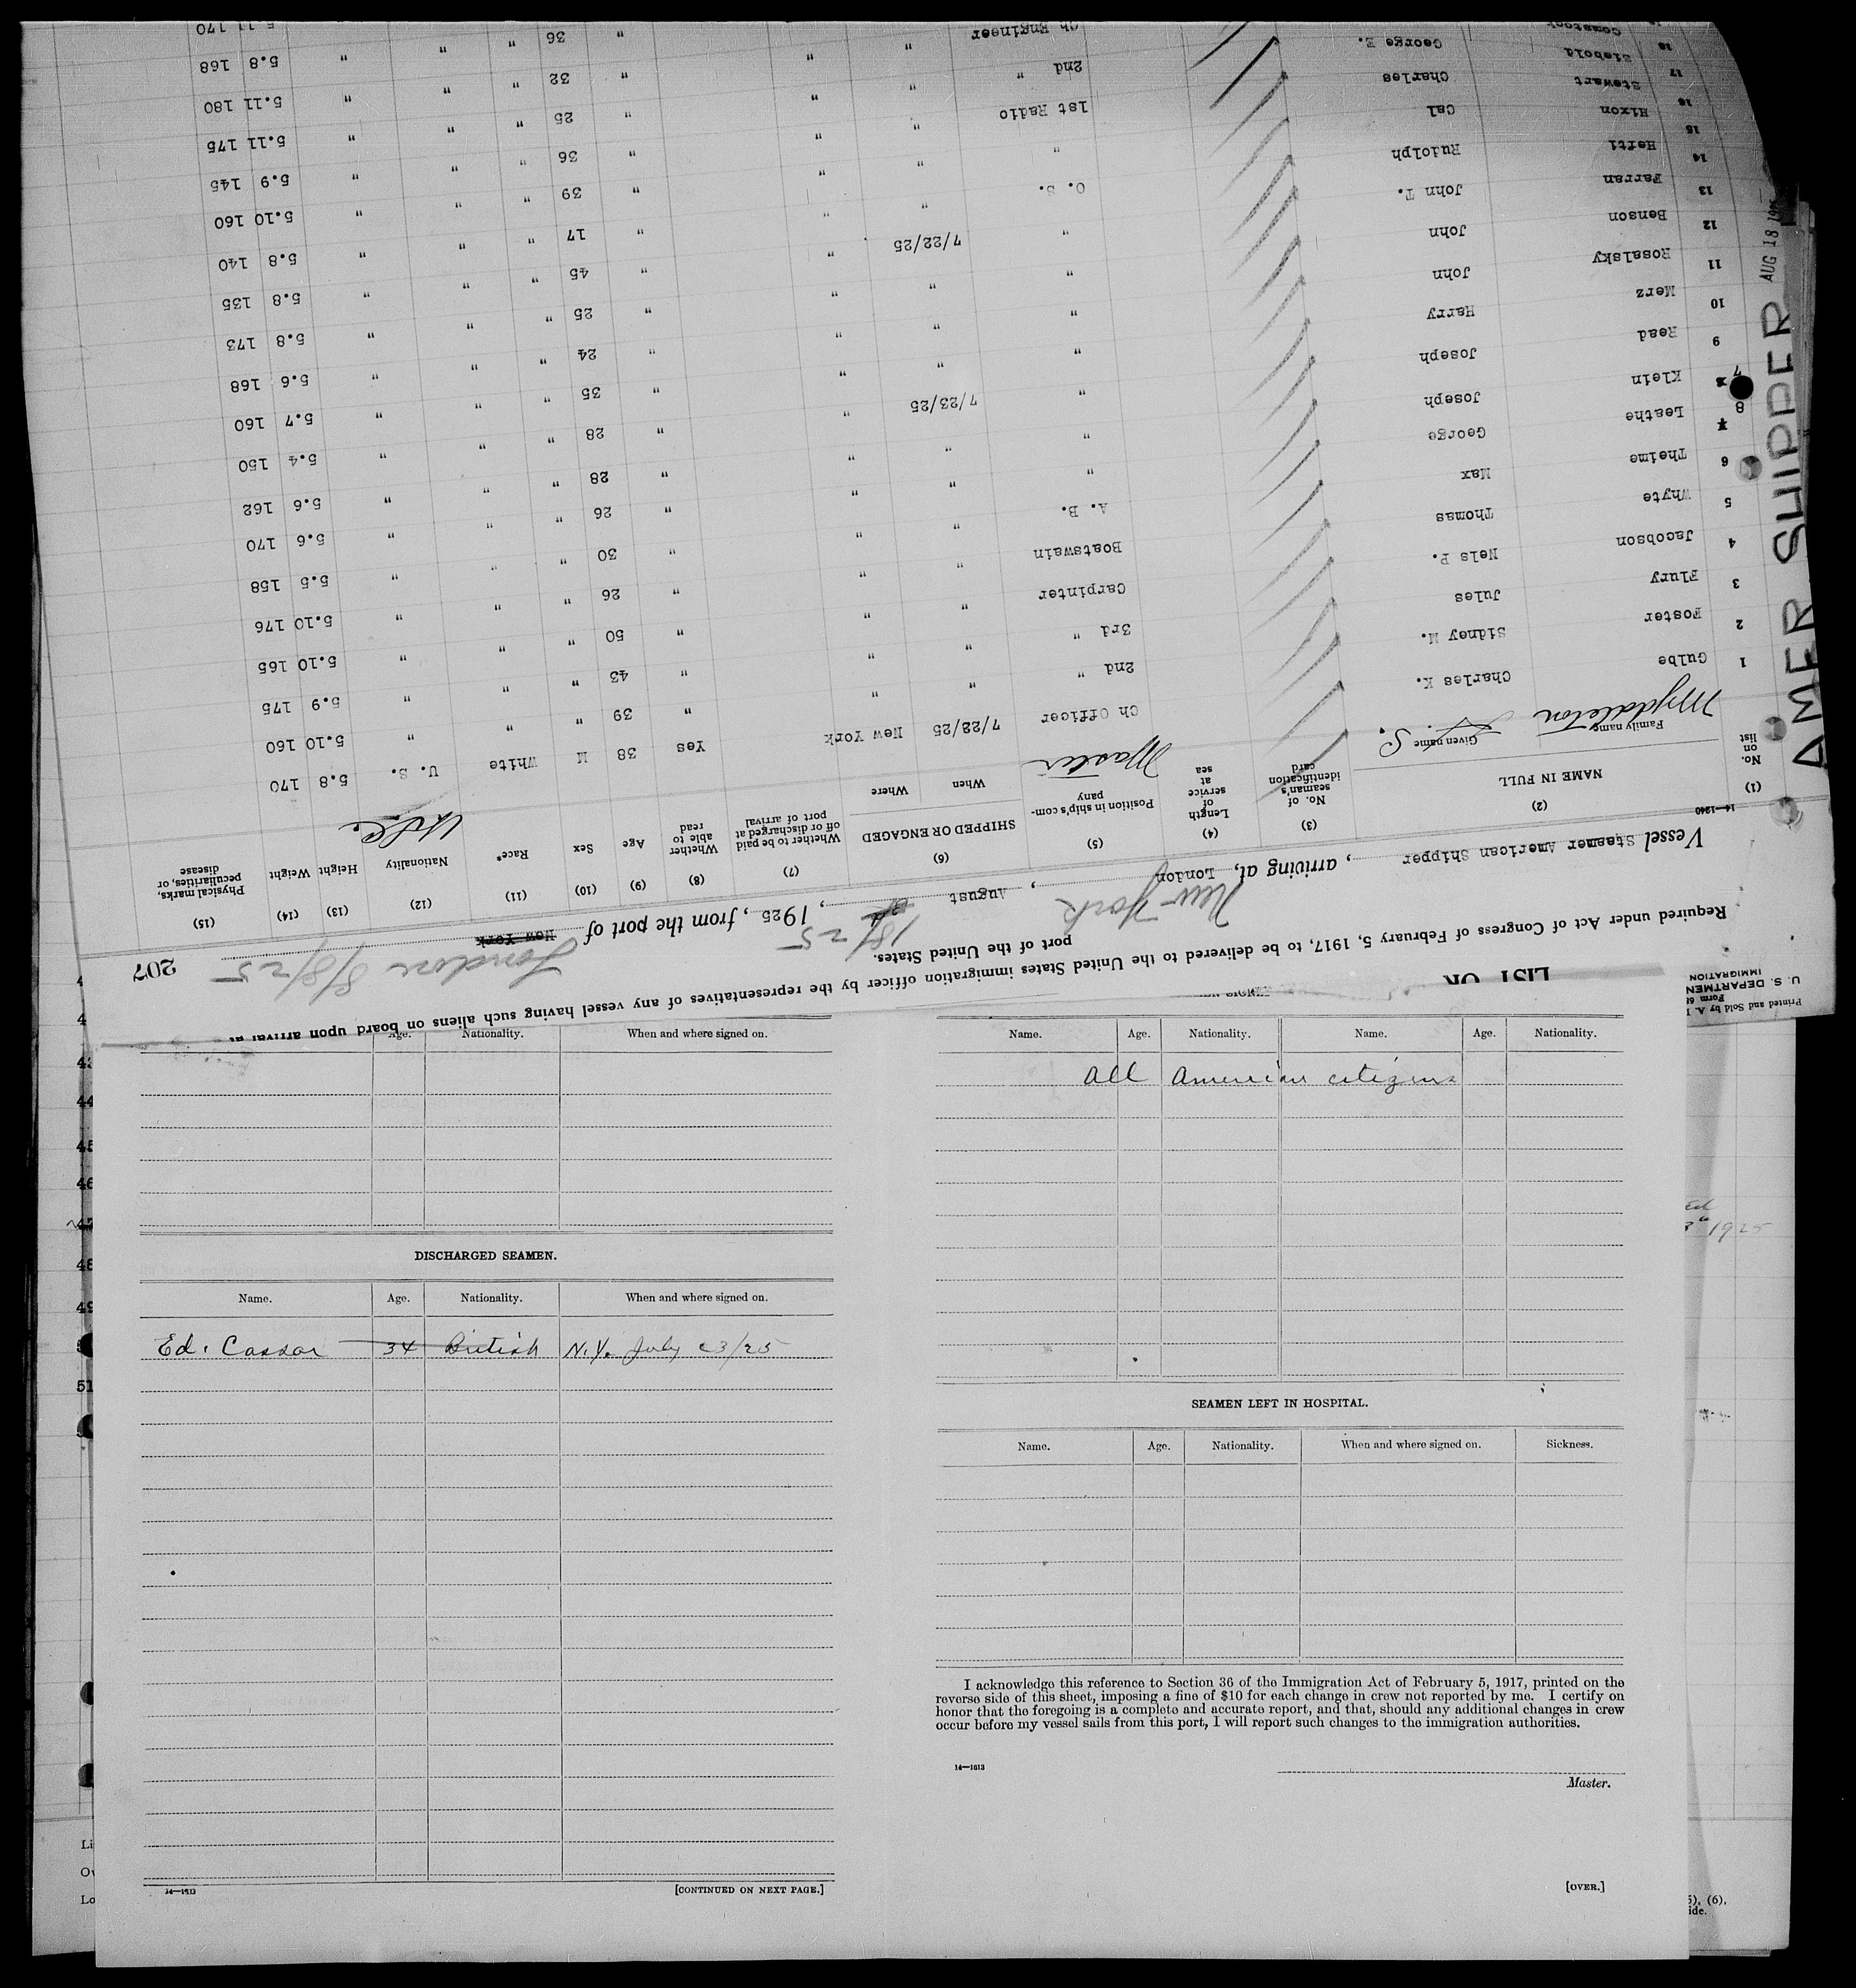 AMER SHIPPER AUG 18
LIST OR
Required under Act of Congress of February 5, 1917, to be delivered to the United States immigration officer by the representatives of any vessel having such aliens on board upon arrival at
port of the United States.
207
Vessel Steamer American Shipper, arriving at, London New York, August 18/25, 1925, from the port of New York London 8/8/25
14—1240
(1) (2) (3) (4) (5) (6) (7) (8) (9) (10) (11) (12) (13) (14) (15)
No. on list
NAME IN FULL
Family name
Given name
No. of seaman's identification card
Length of service at sea
Position in ship's company
SHIPPED OR ENGAGED
When
Where
Whether to be paid off or discharged at port of arrival
Whether able to read
Age
Sex
Race*
Nationality
Height
Weight
Physical marks, peculiarities, or disease
Myddleton S. Master U.S.C.
1 Gulbe Charles K. Ch Officer 7/22/25 New York Yes 38 M White U. S. 5.8 170
2 Foster Sidney M. 2nd " " " " 39 " " " 5.10 160
3 Flury Jules 3rd " " " " 43 " " " 5.9 175
4 Jacobson Nels P. Carpinter " " " 50 " " " 5.10 165
5 Whyte Thomas Boatswain " " " 26 " " " 5.10 176
6 Theime Max A. B. " " " 30 " " " 5.5 158
8 Leathe George " " " " 26 " " " 5.6 170
7 Klein Joseph " " " " 28 " " " 5.6 162
9 Read Joseph " 7/23/25 " " 28 " " " 5.4 150
10 Merz Harry " " " " 35 " " " 5.7 160
11 Rosalsky John " " " " 24 " " " 5.6 168
12 Benson John " " " " 25 " " " 5.8 173
13 Farran John T. " 7/22/25 " " 45 " " " 5.8 135
14 Hefti Rudolph O. S. " " " 17 " " " 5.8 140
15 Hixon Cal " " " " 39 " " " 5.10 160
16 Stewart Charles 1st Radio " " " 36 " " " 5.9 145
17 Siebold George E. 2nd " " " " 25 " " " 5.11 175
18 Comstock Ch Engineer 32 " " " 5.11 180
36 " " " 5.8 168
5.11 170
Printed and Sold by
U. S. DEPARTMEN
IMMIGRATION
Age. Nationality. When and where signed on.
Name. Age. Nationality. Name. Age. Nationality.
All American citizens
DISCHARGED SEAMEN.
Name. Age. Nationality. When and where signed on.
Ed. Cassar 34 British N.Y. July 23/25
14—1613
[CONTINUED ON NEXT PAGE.]
SEAMEN LEFT IN HOSPITAL.
Name. Age. Nationality. When and where signed on. Sickness.
I acknowledge this reference to Section 36 of the Immigration Act of February 5, 1917, printed on the
reverse side of this sheet, imposing a fine of $10 for each change in crew not reported by me. I certify on
honor that the foregoing is a complete and accurate report, and that, should any additional changes in crew
occur before my vessel sails from this port, I will report such changes to the immigration authorities.
14—1613
Master.
[OVER.]
44
46
48
51
1925
(6),